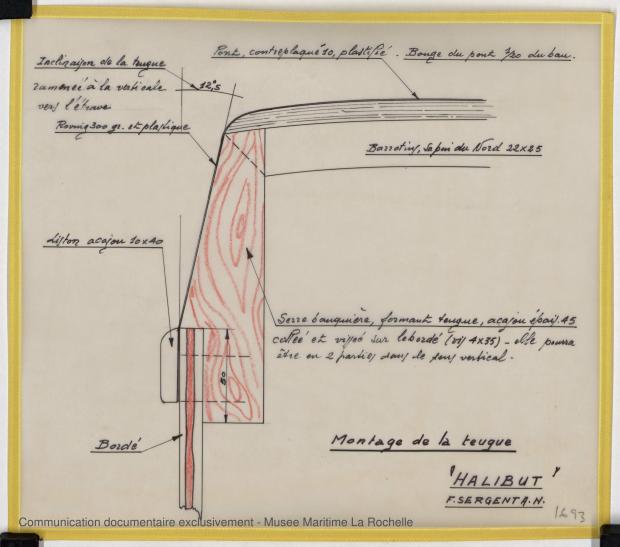 Inclinaison de la teugue
ramenée à la verticale
vers l'étrave
12°,5
Pont, contreplaqué 10, plastifié. Bouge du pont 3/20 du bau.
Roving 300 gr. et plastique
Barrotins, Sapin du Nord 22x25
Liston acajou 10x40
Serre bauquière, formant teugue, acajou épais. 45
collée et vissée sur le bordé (vis 4x35) - elle pourra
être en 2 parties dans le sens vertical.
80
Bordé
Montage de la teugue
"HALIBUT"
F. SERGENT A.N.
1693
Communication documentaire exclusivement - Musee Maritime La Rochelle